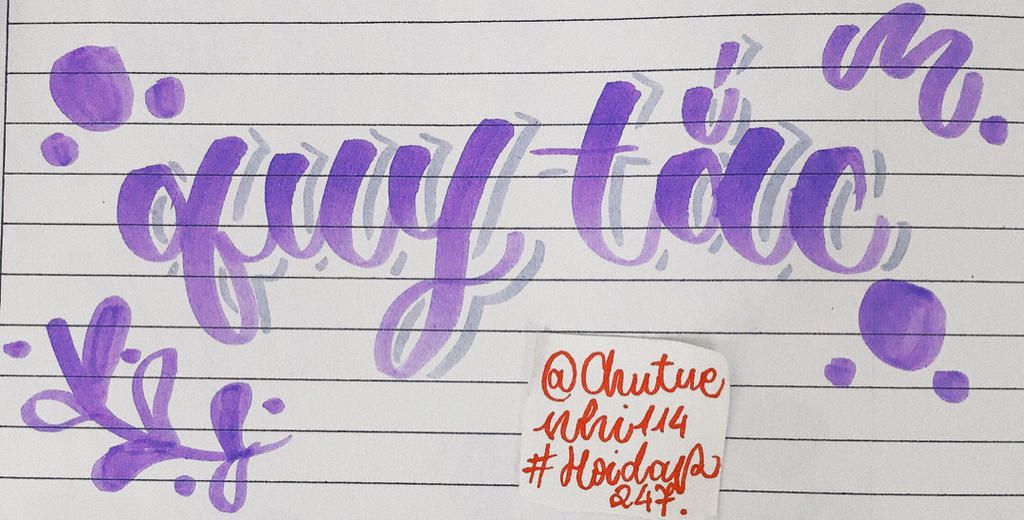 quy tắc
@Chutue
nhi114
#Hoidap
247.